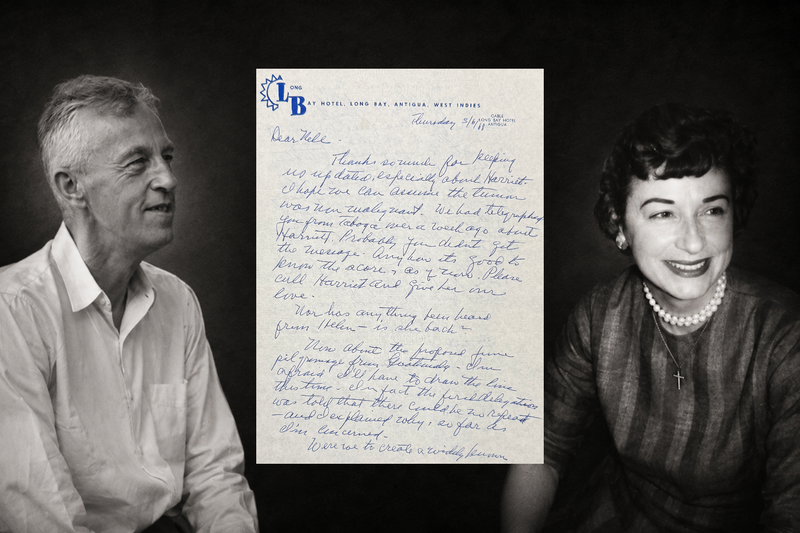 LONG BAY HOTEL, LONG BAY, ANTIGUA, WEST INDIES
CABLE
LONG BAY HOTEL
ANTIGUA
Thursday 3/6/69
Dear Nell -
Thanks so much for keeping
us updated, especially about Harriet.
I hope we can assume the tumor
was non malignant. We had telegraphed
you from Tobago over a week ago about
Harriet. Probably you didn't get
the message. Anyhow it's good to
know the score, as of now. Please
call Harriet and give her our
love.
Nor has anything been heard
from Helen - is she back?
Now about the proposed June
pilgrimage from - I'm
afraid I'll have to draw the line
this time. In fact the first delegation
was told that there could be no repeat
- and I explained why, so far as
I'm concerned.
Were we to create a widely known